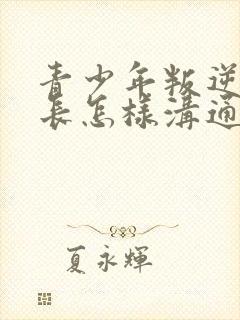 青少年叛逆
長怎樣溝通
夏永輝